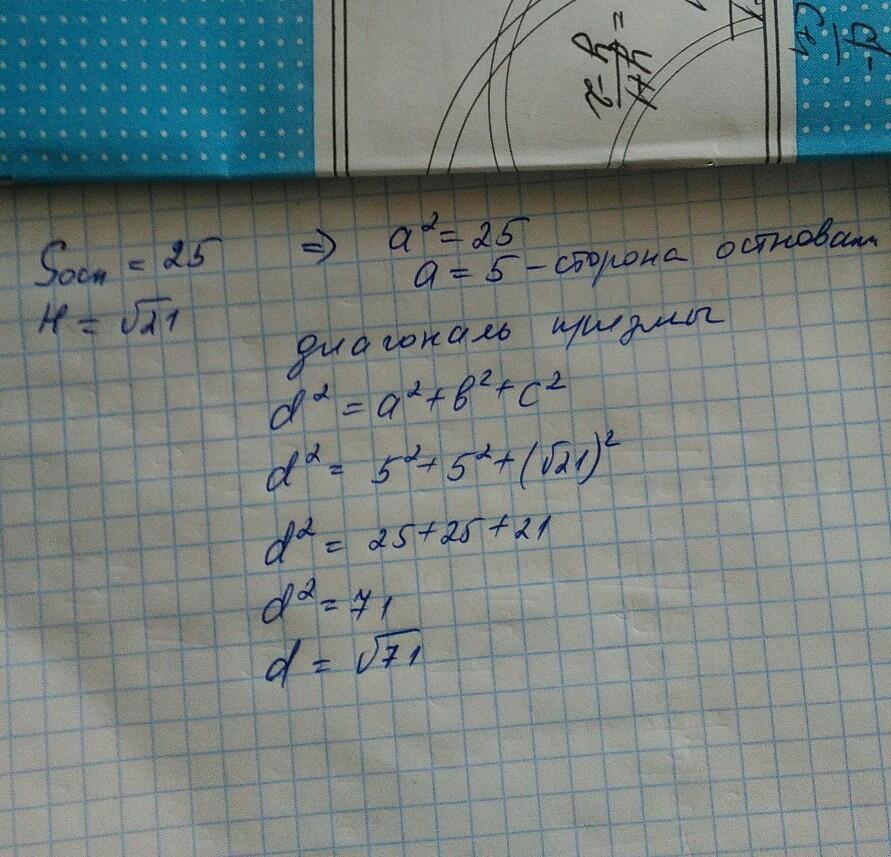 Sосн = 25 ⇒ a² = 25
H = √21 a = 5 – сторона основан
диагональ призмы
d² = a² + b² + c²
d² = 5² + 5² + (√21)²
d² = 25 + 25 + 21
d² = 71
d = √71